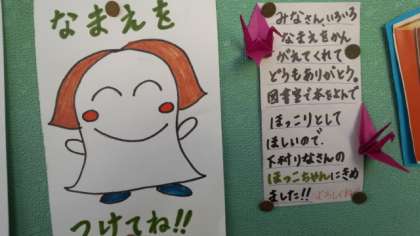 なまえを
つけてね!!
みなさん、いろいろ
なまえをかん
がえてくれて
どうもありがとう。
図書室で本をよんで
ほっこりとして
ほしいので、
下村りなさんの
ほっこちゃんにきめ
ました!!よろしくね